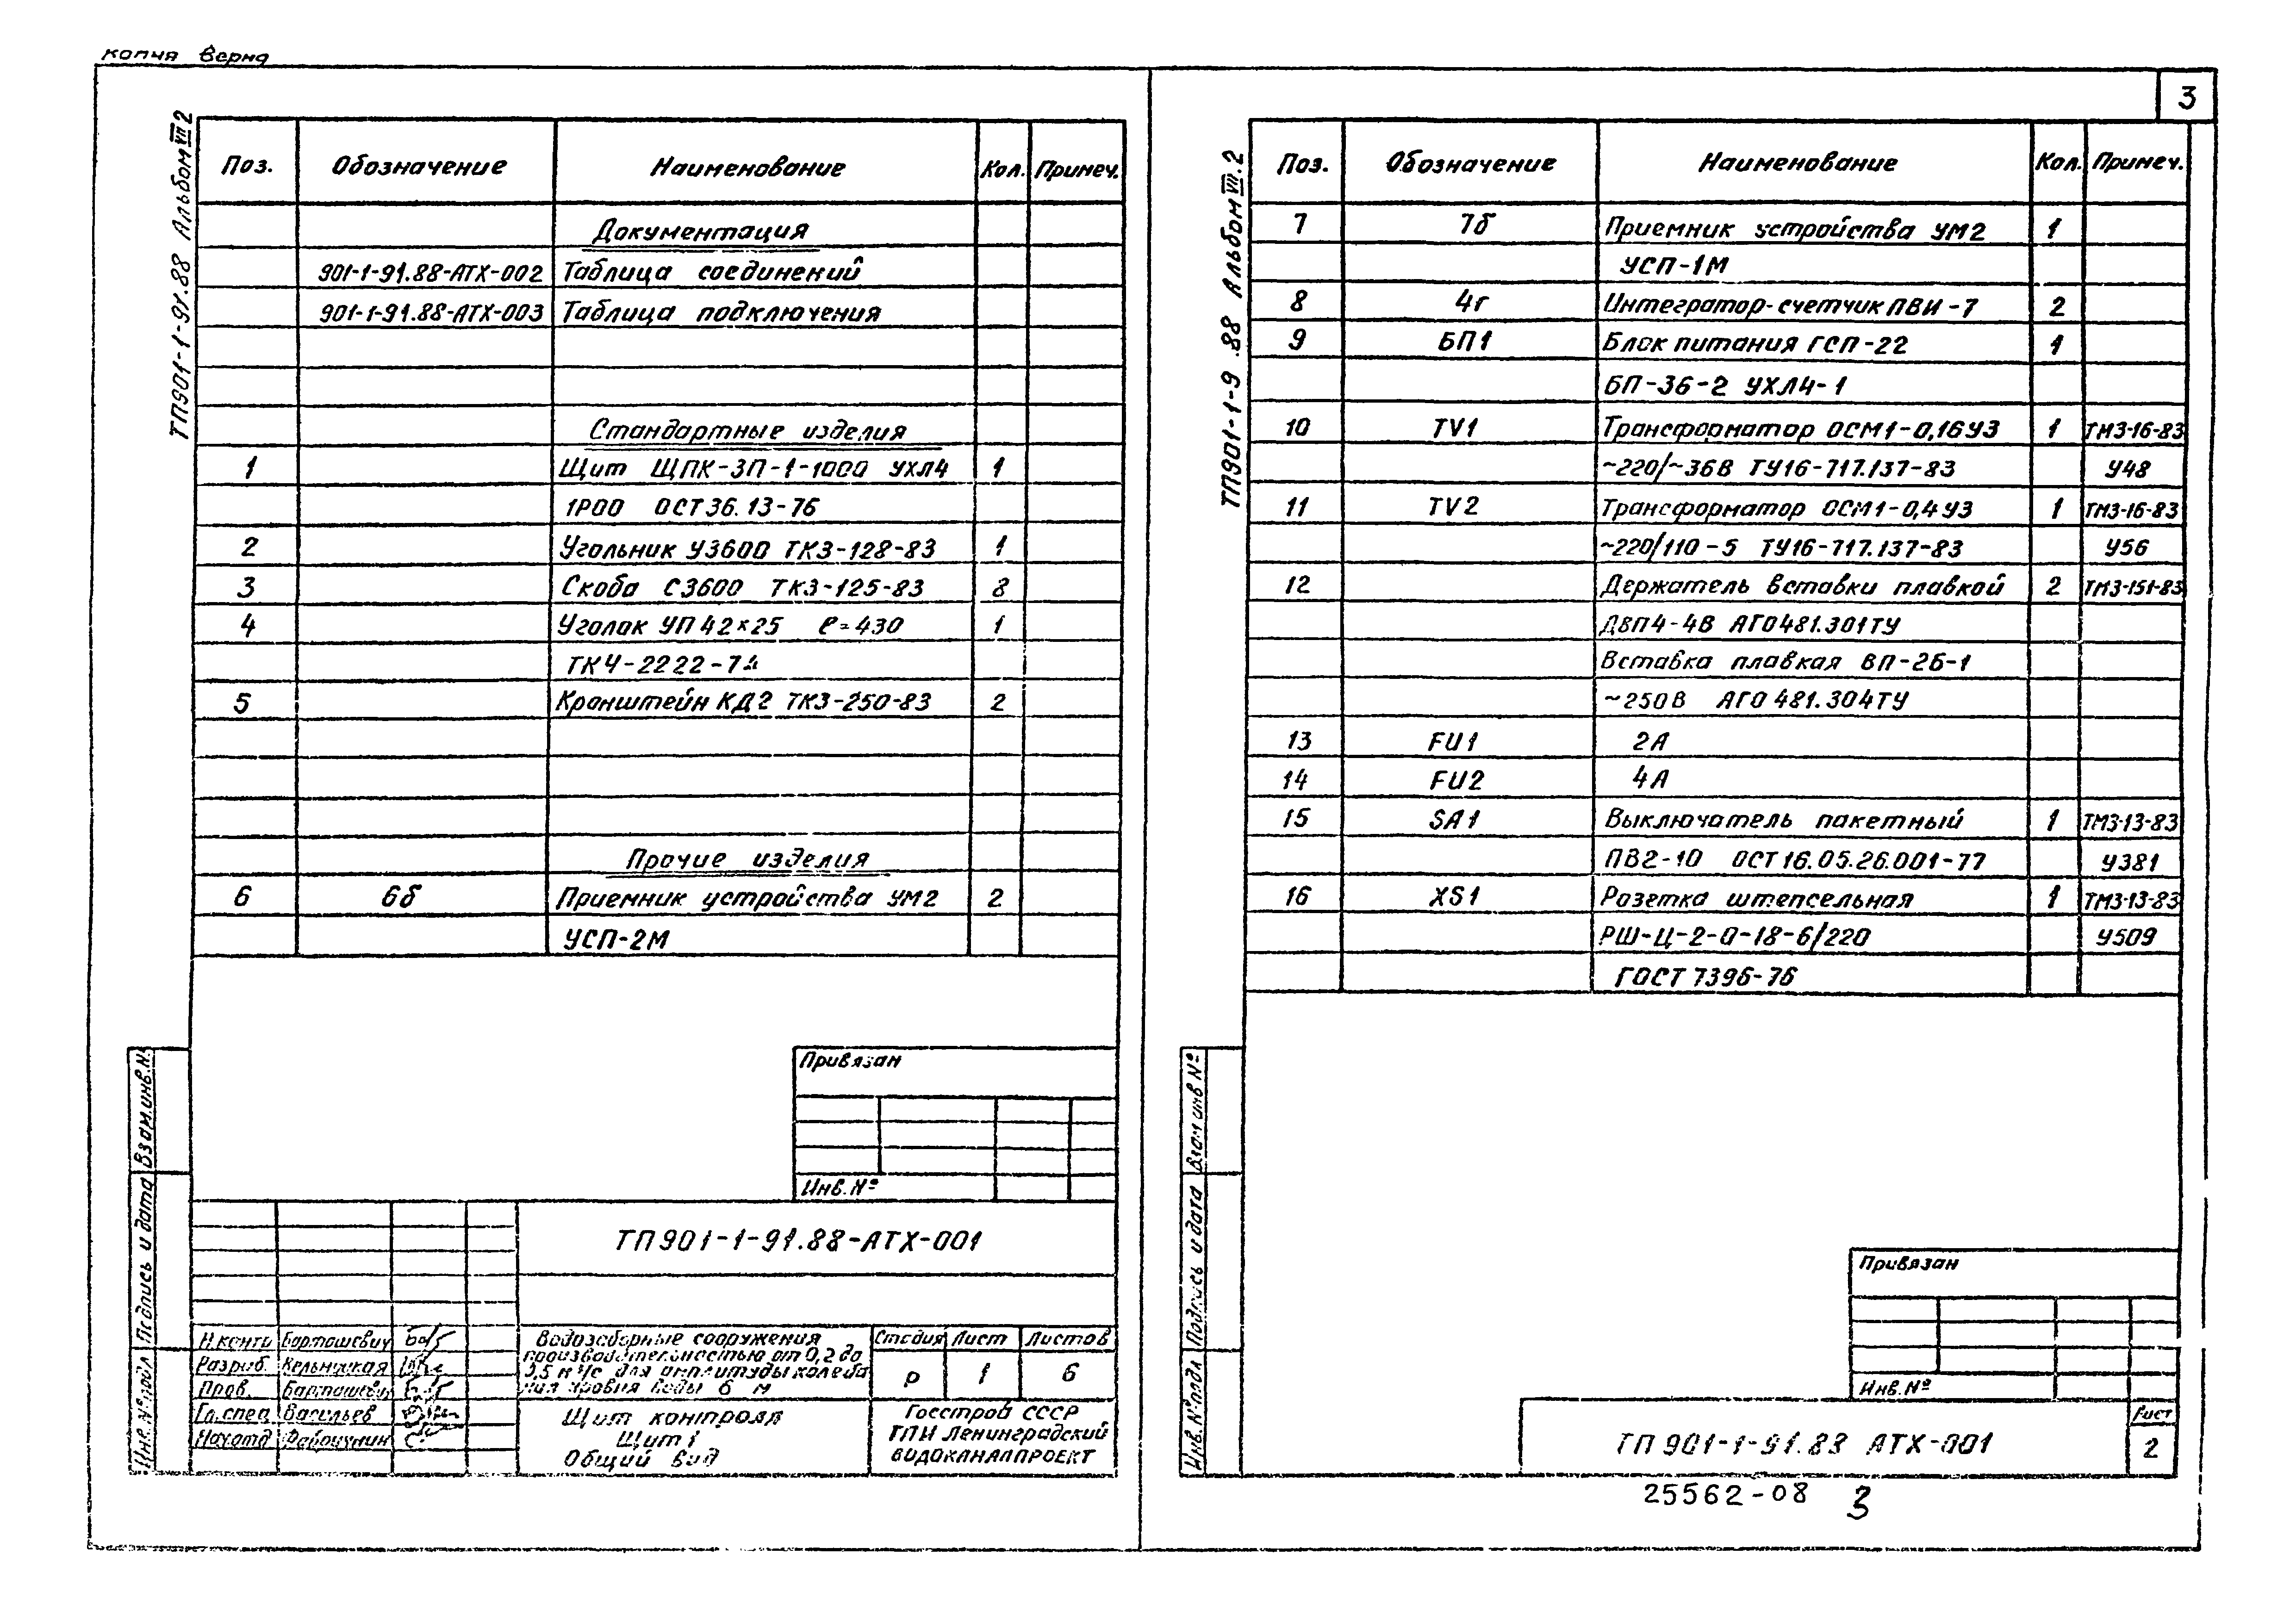 копия верна
ТП901-1-91.88 Альбом VII.2
Поз. Обозначение Наименование Кол. Примеч.
Документация
901-1-91.88-АТХ-002 Таблица соединений
901-1-91.88-АТХ-003 Таблица подключения
Стандартные изделия
1 Щит ЩПК-ЗП-1-1000 УХЛ4 1
1Р00 ОСТ 36.13-76
2 Угольник У3600 ТК3-128-83 1
3 Скоба С3600 ТК3-125-83 8
4 Уголок УП 42×25 ℓ=430 1
ТК4-2222-74
5 Кронштейн КД2 ТК3-250-83 2
Прочие изделия
6 6б Приемник устройства УМ2 2
УСП-2М
Привязан
Инв.№
Взам.инв.№
Подпись и дата
Инв.№подл
ТП 901-1-91.88-АТХ-001
Н.контр Бартошевич
Разраб.
Пров. Бартошевич
Гл.спец Васильев
Нач.отд
Водозаборные сооружения
производительностью от 0,2 до
0,5 м³/с для амплитуды колеба
ния уровня воды 6 м
Стадия Лист Листов
Р 1 6
Щит контроля
Щит 1
Общий вид
Госстрой СССР
ТПИ Ленинградский
ВОДОКАНАЛПРОЕКТ
3
ТП901-1-9 .88 Альбом VII.2
Поз. Обозначение Наименование Кол. Примеч.
7 7б Приемник устройства УМ2 1
УСП-1М
8 4г Интегратор-счетчик ПВИ-7 2
9 БП1 Блок питания ГСП-22 1
БП-36-2 УХЛ4-1
10 TV1 Трансформатор ОСМ1-0,16У3 1 ТМ3-16-83
~220/~36В ТУ16-717.137-83 У48
11 TV2 Трансформатор ОСМ1-0,4У3 1 ТМ3-16-83
~220/110-5 ТУ16-717.137-83 У56
12 Держатель вставки плавкой 2 ТМ3-151-83
ДВП4-4В АГО481.301ТУ
Вставка плавкая ВП-2Б-1
~250В АГО 481.304ТУ
13 FU1 2А
14 FU2 4А
15 SA1 Выключатель пакетный 1 ТМ3-13-83
ПВ2-10 ОСТ 16.05.26.001-77 У381
16 XS1 Розетка штепсельная 1 ТМ3-13-83
РШ-Ц-2-0-18-6/220 У509
ГОСТ 7396-76
Взам инв №
Подпись и дата
Инв.№подл
Привязан
Инв.№
ТП 901-1-91.88 АТХ-001
Лист
2
25562-08 3